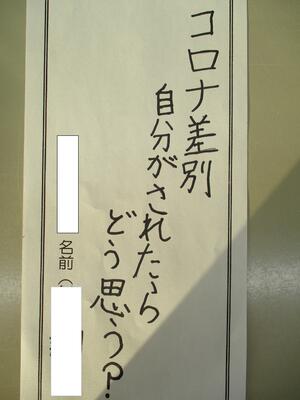 コロナ差別
自分がされたら
どう思う?
名前(